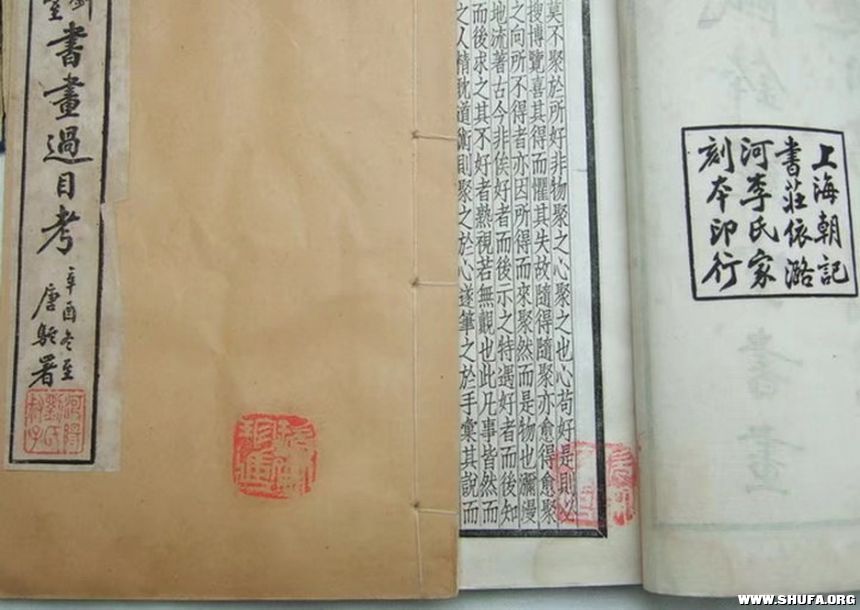 書畫過目考
辛酉冬至
唐駝署
上海朝記
書莊依潞
河李氏家
刻本印行
莫不聚於所好非物聚之心聚之也心苟好是則必
搜博覽喜其得而懼其失故隨得隨聚亦愈得愈聚
之向所不得者亦因所得而來聚然而是物也瀰漫
地流著古今非俟好者而後示之特遇好者而後知
而後求之其不好者熟視若無覩也此凡事皆然而
之人精耽道術則聚之於心遂筆之於手彙其說而
WWW.SHUFA.ORG